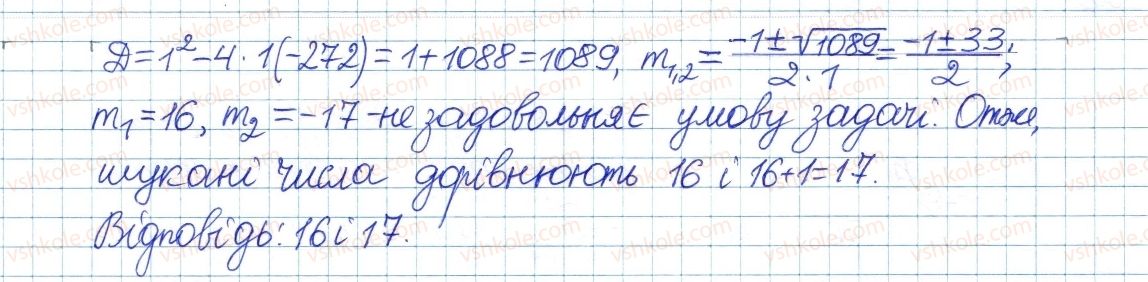 D = 1² – 4 · 1(–272) = 1 + 1088 = 1089, m₁,₂ = (–1 ± √1089)/(2 · 1) = (–1 ± 33)/2;
m₁ = 16, m₂ = –17 – не задовольняє умову задачі. Отже,
шукані числа дорівнюють 16 і 16 + 1 = 17.
Відповідь: 16 і 17.